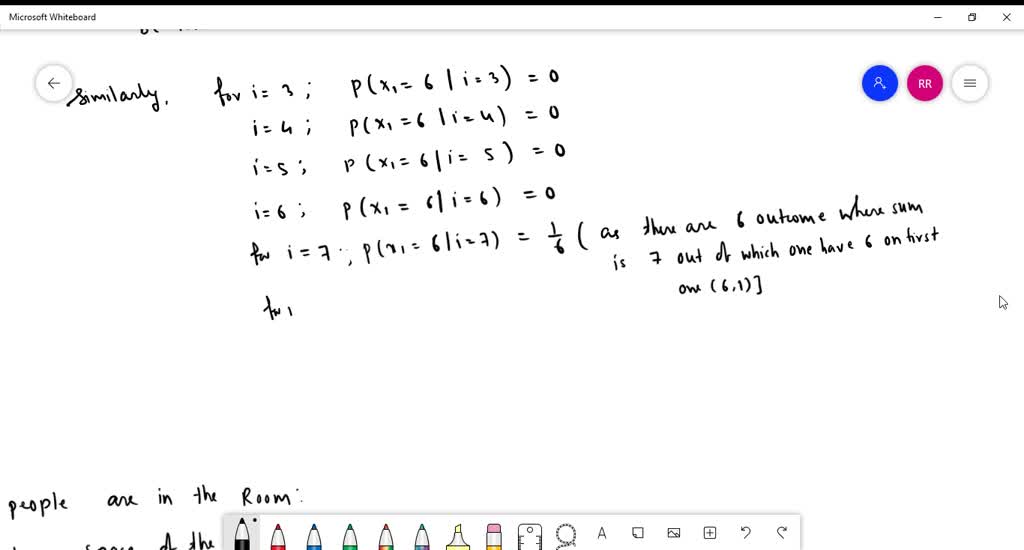 Microsoft Whiteboard
RR
similarly, for i = 3 ; P(x₁ = 6 | i = 3) = 0
i = 4 ; P(x₁ = 6 | i = 4) = 0
i = 5 ; P(x₁ = 6 | i = 5) = 0
i = 6 ; P(x₁ = 6 | i = 6) = 0
for i = 7 ; P(x₁ = 6 | i = 7) = 1/6 ( as there are 6 outcome where sum
is 7 out of which one have 6 on first
one (6,1)]
for
people are in the Room :
space of the
A